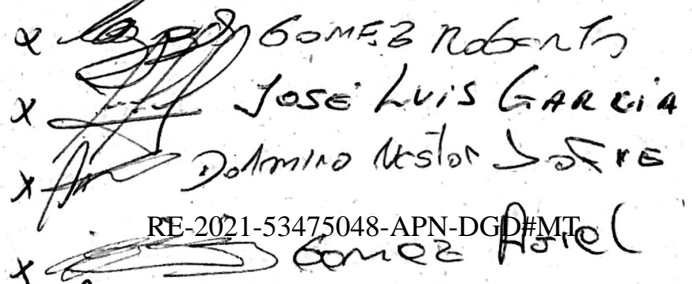 x GOMEZ Roberto
x JOSE LUIS GARCIA
x Nestor
RE-2021-53475048-APN-DGD#MT
x GOMEZ Ariel